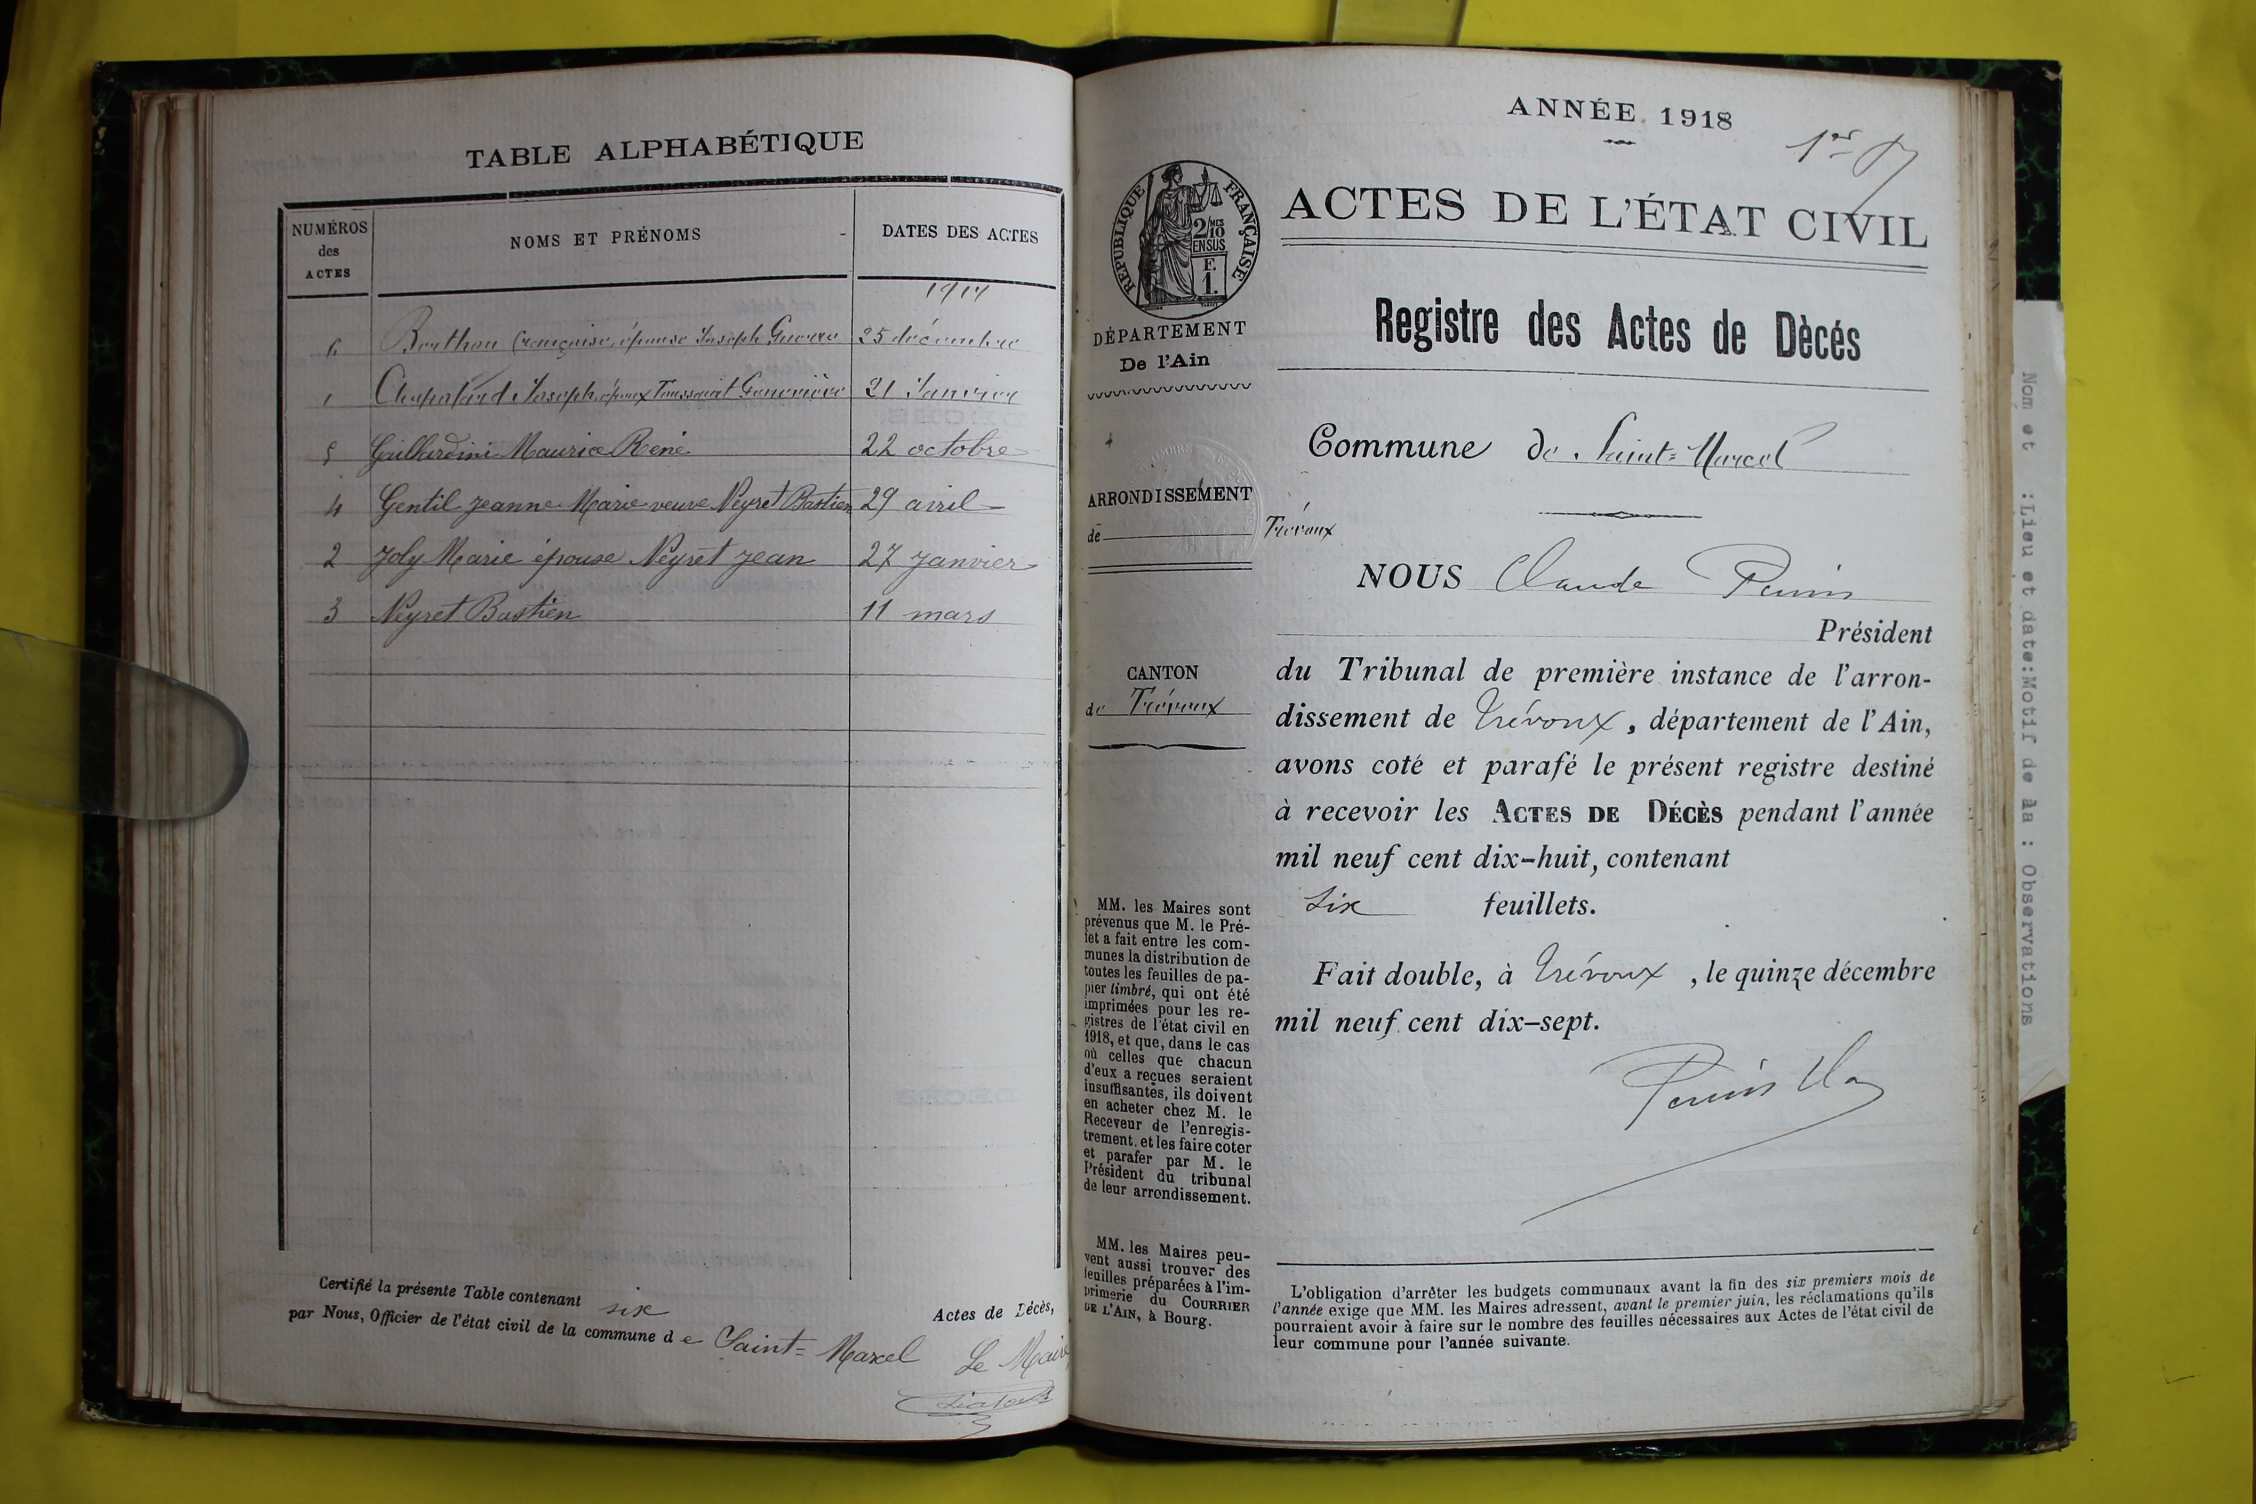 TABLE ALPHABÉTIQUE
NUMÉROS
des
ACTES
NOMS ET PRÉNOMS
DATES DES ACTES
1917
6 Berthon Françoise, épouse Joseph 25 décembre
1 Joseph, époux Toussaint Geneviève 21 Janvier
5 Gaillardini Maurice René 22 octobre
4 Gentil Jeanne Marie veuve Neyret Bastien 29 avril
2 Joly Marie épouse Neyret Jean 27 Janvier
3 Neyret Bastien 11 mars
Certifié la présente Table contenant six Actes de Décès,
par Nous, Officier de l'état civil de la commune de Saint-Marcel
Le Maire
ANNÉE 1918
1er
ACTES DE L'ÉTAT CIVIL
RÉPUBLIQUE FRANÇAISE
2/MES
10
EN SUS
F.
1.
DÉPARTEMENT
De l'Ain
Registre des Actes de Dècés
Commune de Saint-Marcel
ARRONDISSEMENT
de Trévoux
NOUS Claude Perrin
Président
du Tribunal de première instance de l'arron-
dissement de Trévoux, département de l'Ain,
avons coté et parafé le présent registre destiné
à recevoir les ACTES DE DÉCÈS pendant l'année
mil neuf cent dix-huit, contenant
six feuillets.
Fait double, à Trévoux, le quinze décembre
mil neuf cent dix-sept.
CANTON
de Trévoux
MM. les Maires sont
prévenus que M. le Pré-
fet a fait entre les com-
munes la distribution de
toutes les feuilles de pa-
pier timbré, qui ont été
imprimées pour les re-
gistres de l'état civil en
1918, et que, dans le cas
où celles que chacun
d'eux a reçues seraient
insuffisantes, ils doivent
en acheter chez M. le
Receveur de l'enregis-
trement, et les faire coter
et parafer par M. le
Président du tribunal
de leur arrondissement.
MM. les Maires peu-
vent aussi trouver des
feuilles préparées à l'im-
primerie du COURRIER
DE L'AIN, à Bourg.
L'obligation d'arrêter les budgets communaux avant la fin des six premiers mois de
l'année exige que MM. les Maires adressent, avant le premier juin, les réclamations qu'ils
pourraient avoir à faire sur le nombre des feuilles nécessaires aux Actes de l'état civil de
leur commune pour l'année suivante.
Nom et :Lieu et date:Motif de la : Observations